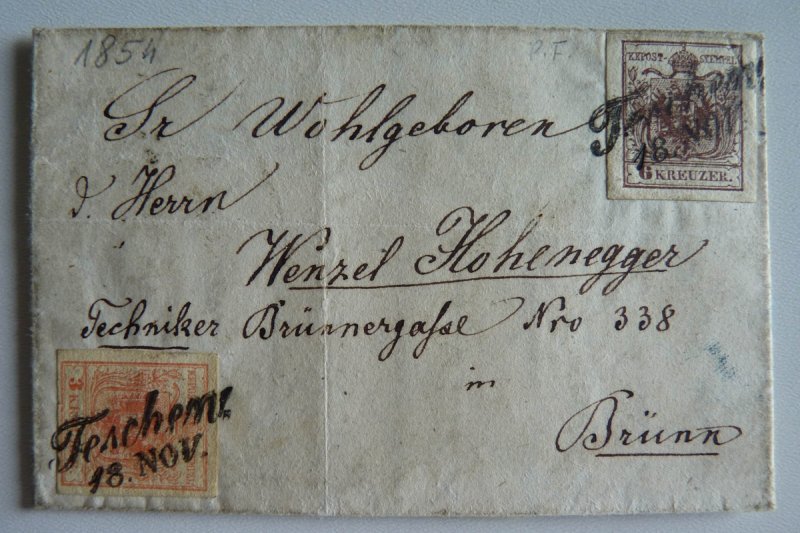 1854
P.F.
KKPOST-STEMPEL
Teschen
18. NOV.
6 KREUZER.
Sr Wohlgeboren
d. Herrn
Wenzel Hohenegger
Techniker Brünnergaſse Nro 338
in
Brünn
3
Teschen
18. NOV.